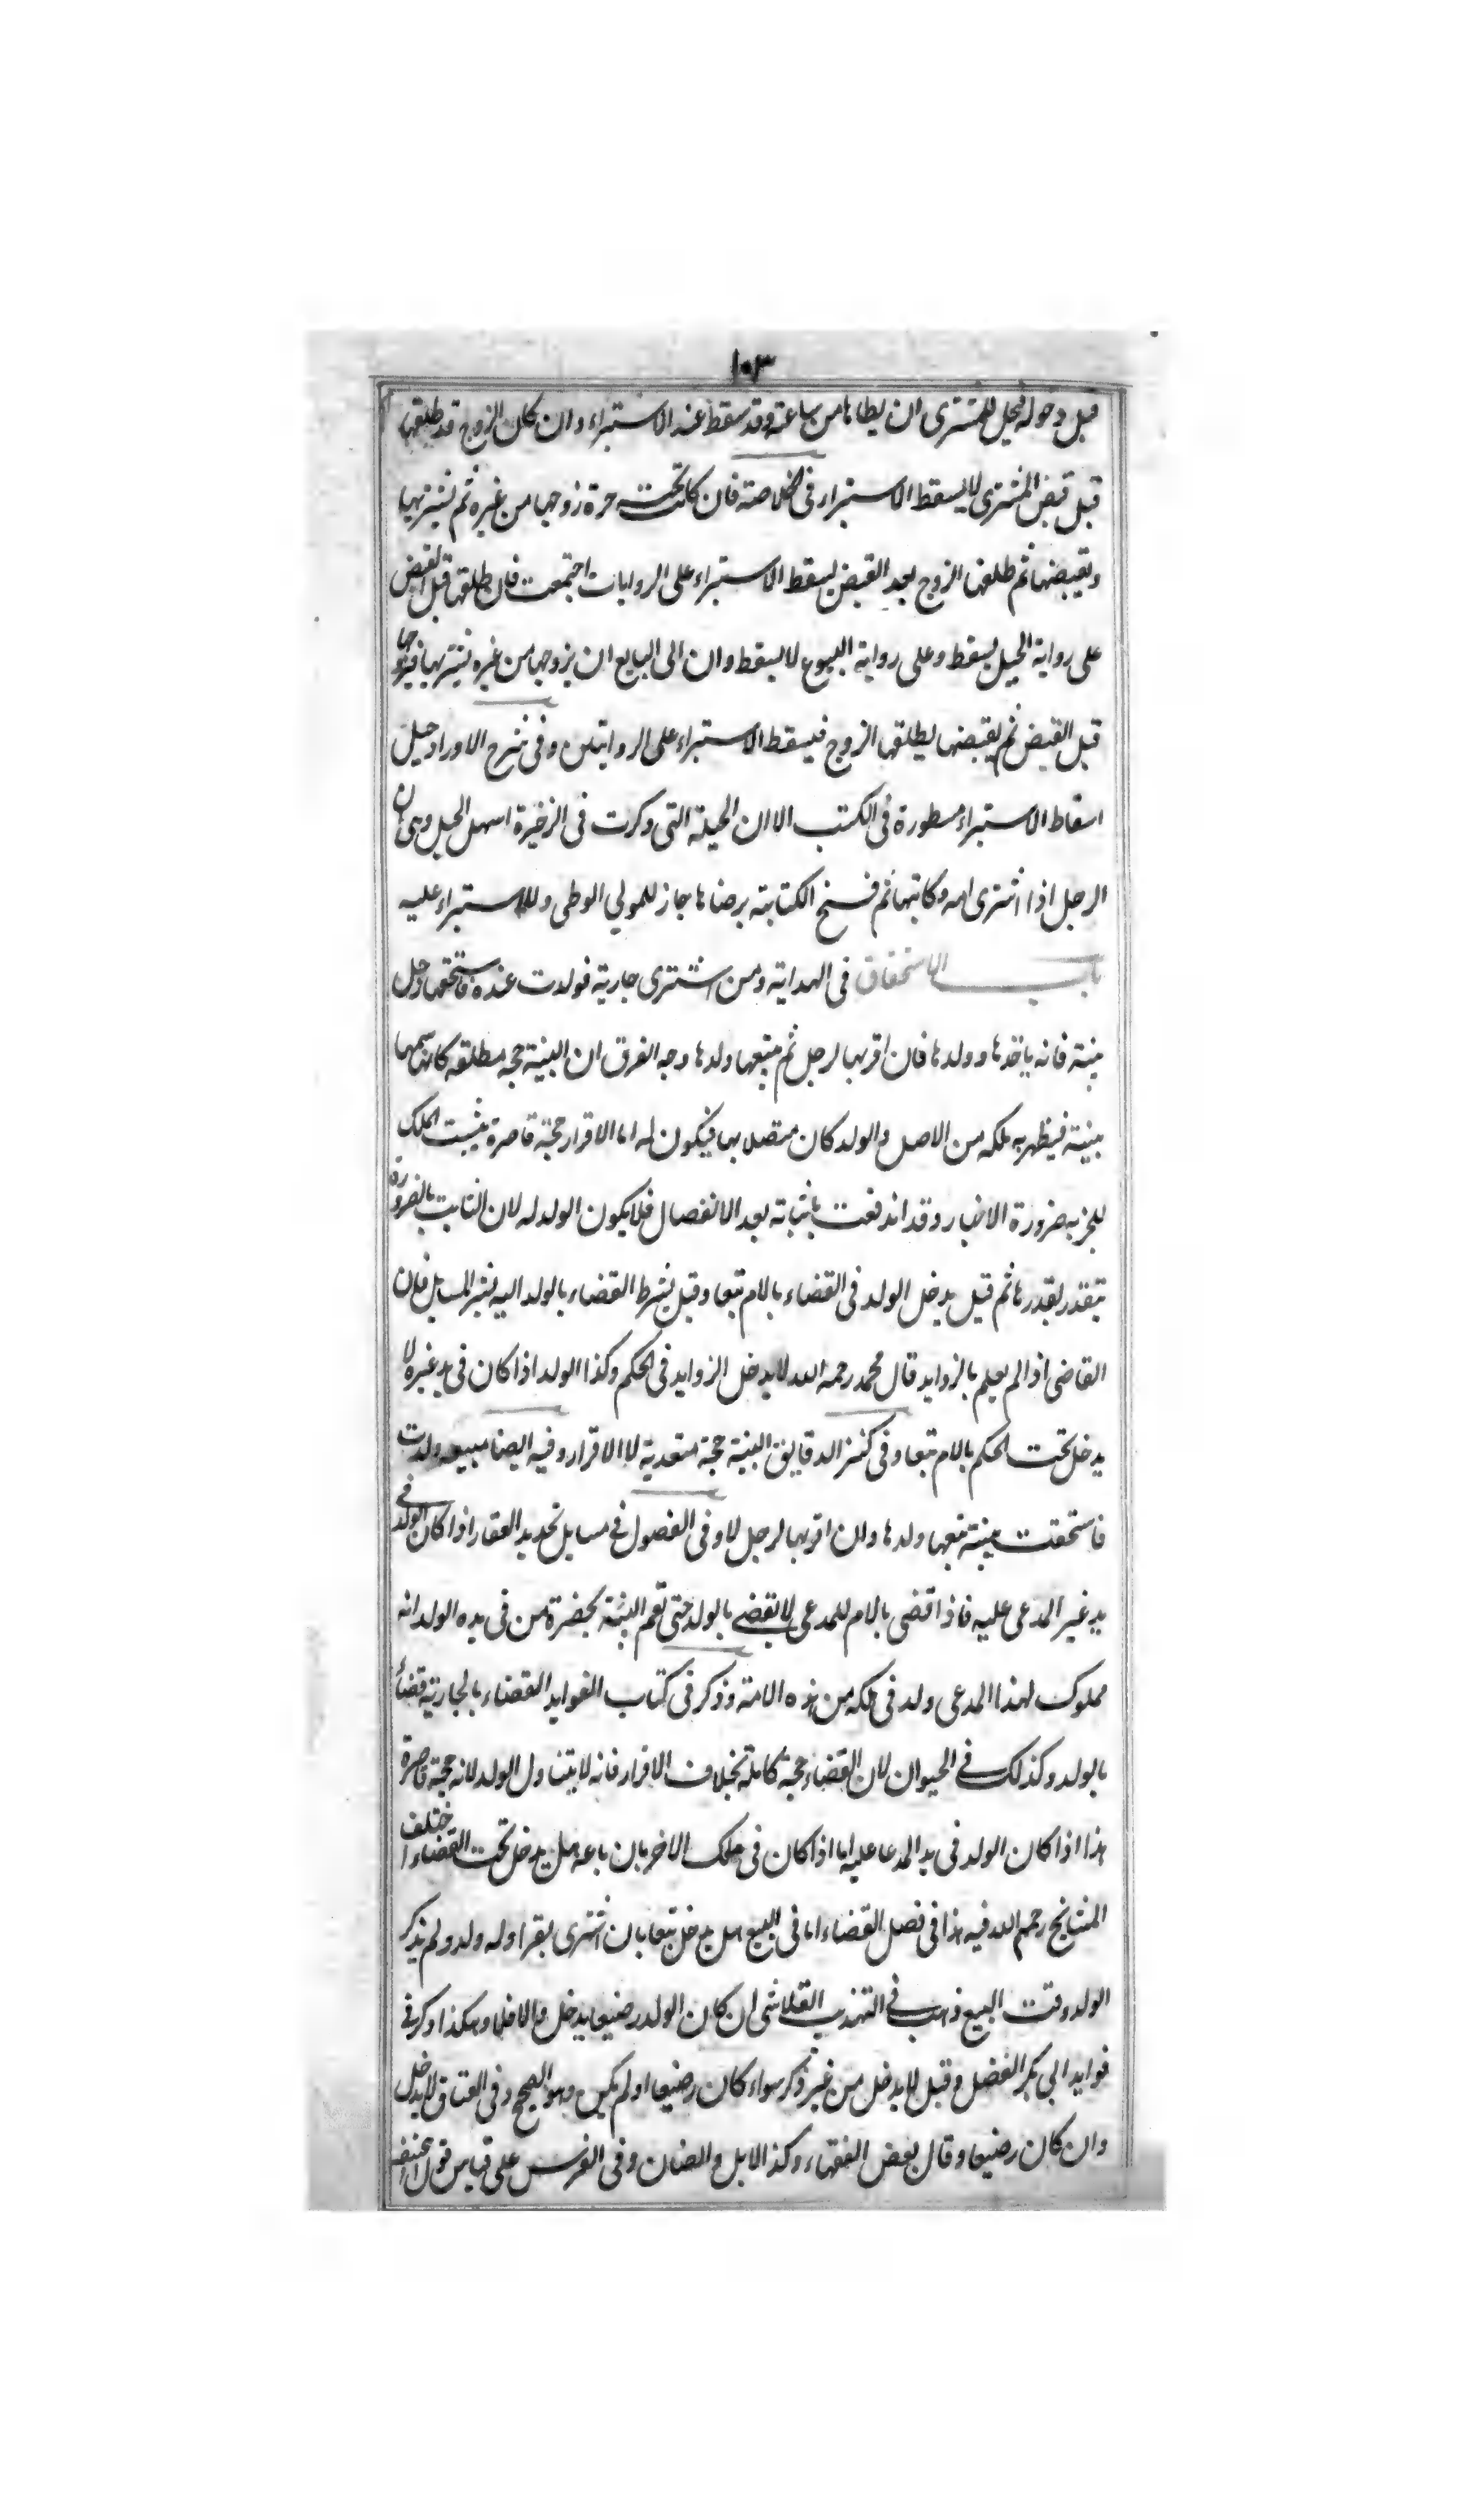 ١٠٣
قبل دخوله فيحل للمشترى ان يطاها من ساعته وقد سقط عنه الاستبراء وان كان الزوج قد طلقها
قبل قبض المشترى لا يسقط الاستبراء فى الخلاصة فان كانت تحته حرة زوجها من غيره ثم يشتريها
ويقبضها ثم طلقها الزوج بعد القبض يسقط الاستبراء على الروايات اجتمعت فان طلقها قبل القبض
على رواية الحيل يسقط وعلى رواية البيوع لا يسقط وان ابى البايع ان يزوجها من غيره يشتريها فيزوجها
قبل القبض ثم يقبضها يطلقها الزوج فيسقط الاستبراء على الروايتين وفى شرح الاوراد حيل
اسقاط الاستبراء مسطورة فى الكتب الا ان الحيلة التى ذكرت فى الذخيرة اسهل الحيل وهى ان
الرجل اذا اشترى امه وكاتبها ثم فسخ الكتابة برضاها جاز للمولى الوطى ولا استبراء عليه
باب الاستحقاق فى الهداية ومن اشترى جارية فولدت عنده فاستحقها رجل
ببينة فانه ياخذها وولدها فان اقر بها لرجل ثم يتبعها ولدها وجه الفرق ان البينة حجة مطلقة كاسمها
مبينة فيظهر به ملكه من الاصل والولد كان متصلا بها فيكون له اما الاقرار حجة قاصرة يثبت الملك
للمخبر به ضرورة الاخبار وقد اندفعت باثباته بعد الانفصال فلا يكون الولد له لان الثابت بالضرورة
يتقدر بقدرها ثم قيل يدخل الولد فى القضاء بالام تبعا وقيل يشترط القضاء بالولد اليه يشير المسايل فان
القاضى اذا لم يعلم بالزوايد قال محمد رحمه الله لا يدخل الزوايد فى الحكم وكذا الولد اذا كان فى يد غيره لا
يدخل تحت الحكم بالام تبعا وفى كنز الدقايق البينة حجة متعدية لا الاقرار وفيه ايضا مبيعه ولدت
فاستحقت ببينة تبعها ولدها وان اقر بها لرجل لا وفى الفصول فى مسايل تحديد العقار اذا كان الولد فى
يد غير المدعى عليه فاذا قضى بالام للمدعى لا يقضى بالولد حتى تقم البينة بحضرة من فى يده الولد انه
مملوك لهذا المدعى ولد فى ملكه من هذه الامة وذكر فى كتاب الفوايد القضاء بالجارية قضاء
بالولد وكذلك فى الحيوان لان القضاء حجة كاملة بخلاف الاقرار فانه لا يتناول الولد لانه حجة قاصرة
هذا اذا كان الولد فى يد المدعا عليه اما اذا كان فى ملك الاخر بان باعه هل يدخل تحت القضاء اختلف
المشايخ رحمهم الله فيه هذا فى فصل القضاء اما فى البيع هل يدخل تبعا بان اشترى بقرا وله ولد ولم يذكر
الولد وقت البيع ذهب فى التهذيب القلانسى ان كان الولد رضيعا يدخل والا فلا وهكذا ذكر فى
فوايد ابى بكر الفضل وقيل لا يدخل من غير ذكر سواء كان رضيعا او لم يكن وهو الصحيح وفى العتاق لا يدخل
وان كان رضيعا وقال بعض الفقهاء وكذا الابل والضان وفى الفرس على قياس قول ابى حنيفة